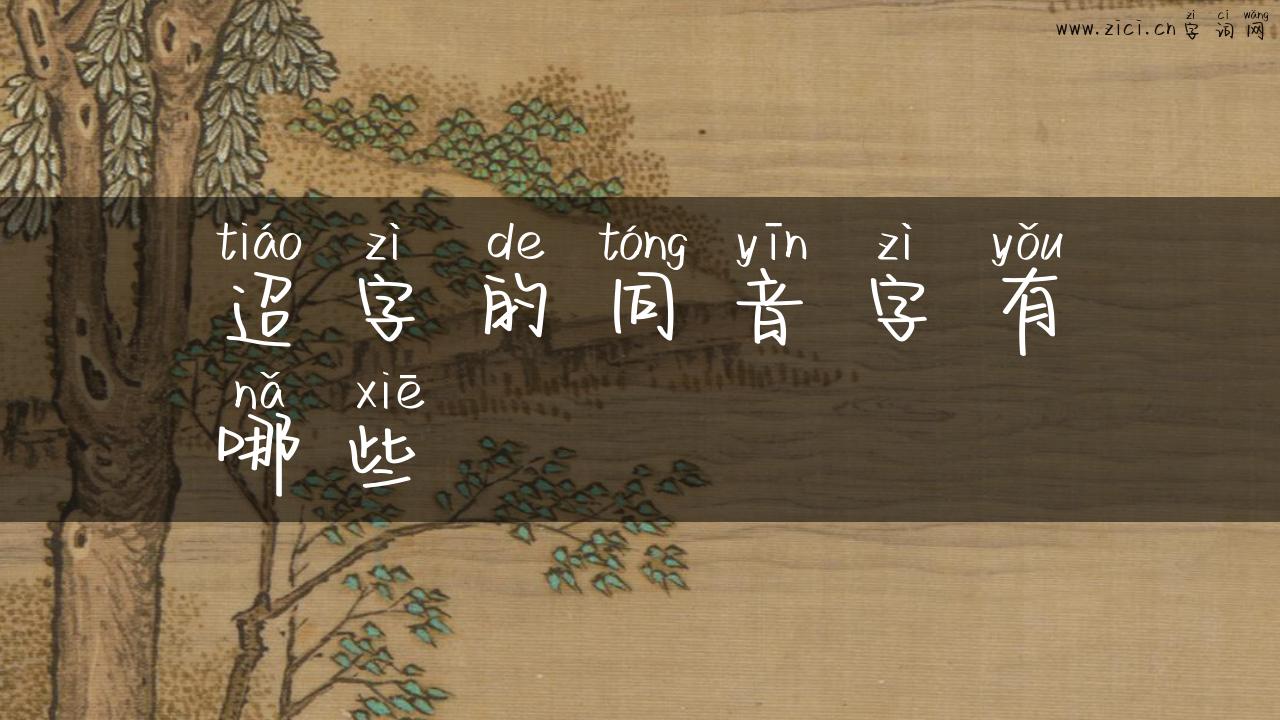 zì cí wǎng
www.zici.cn 字词网
tiáo zì de tóng yīn zì yǒu
迢字的同音字有
nǎ xiē
哪些